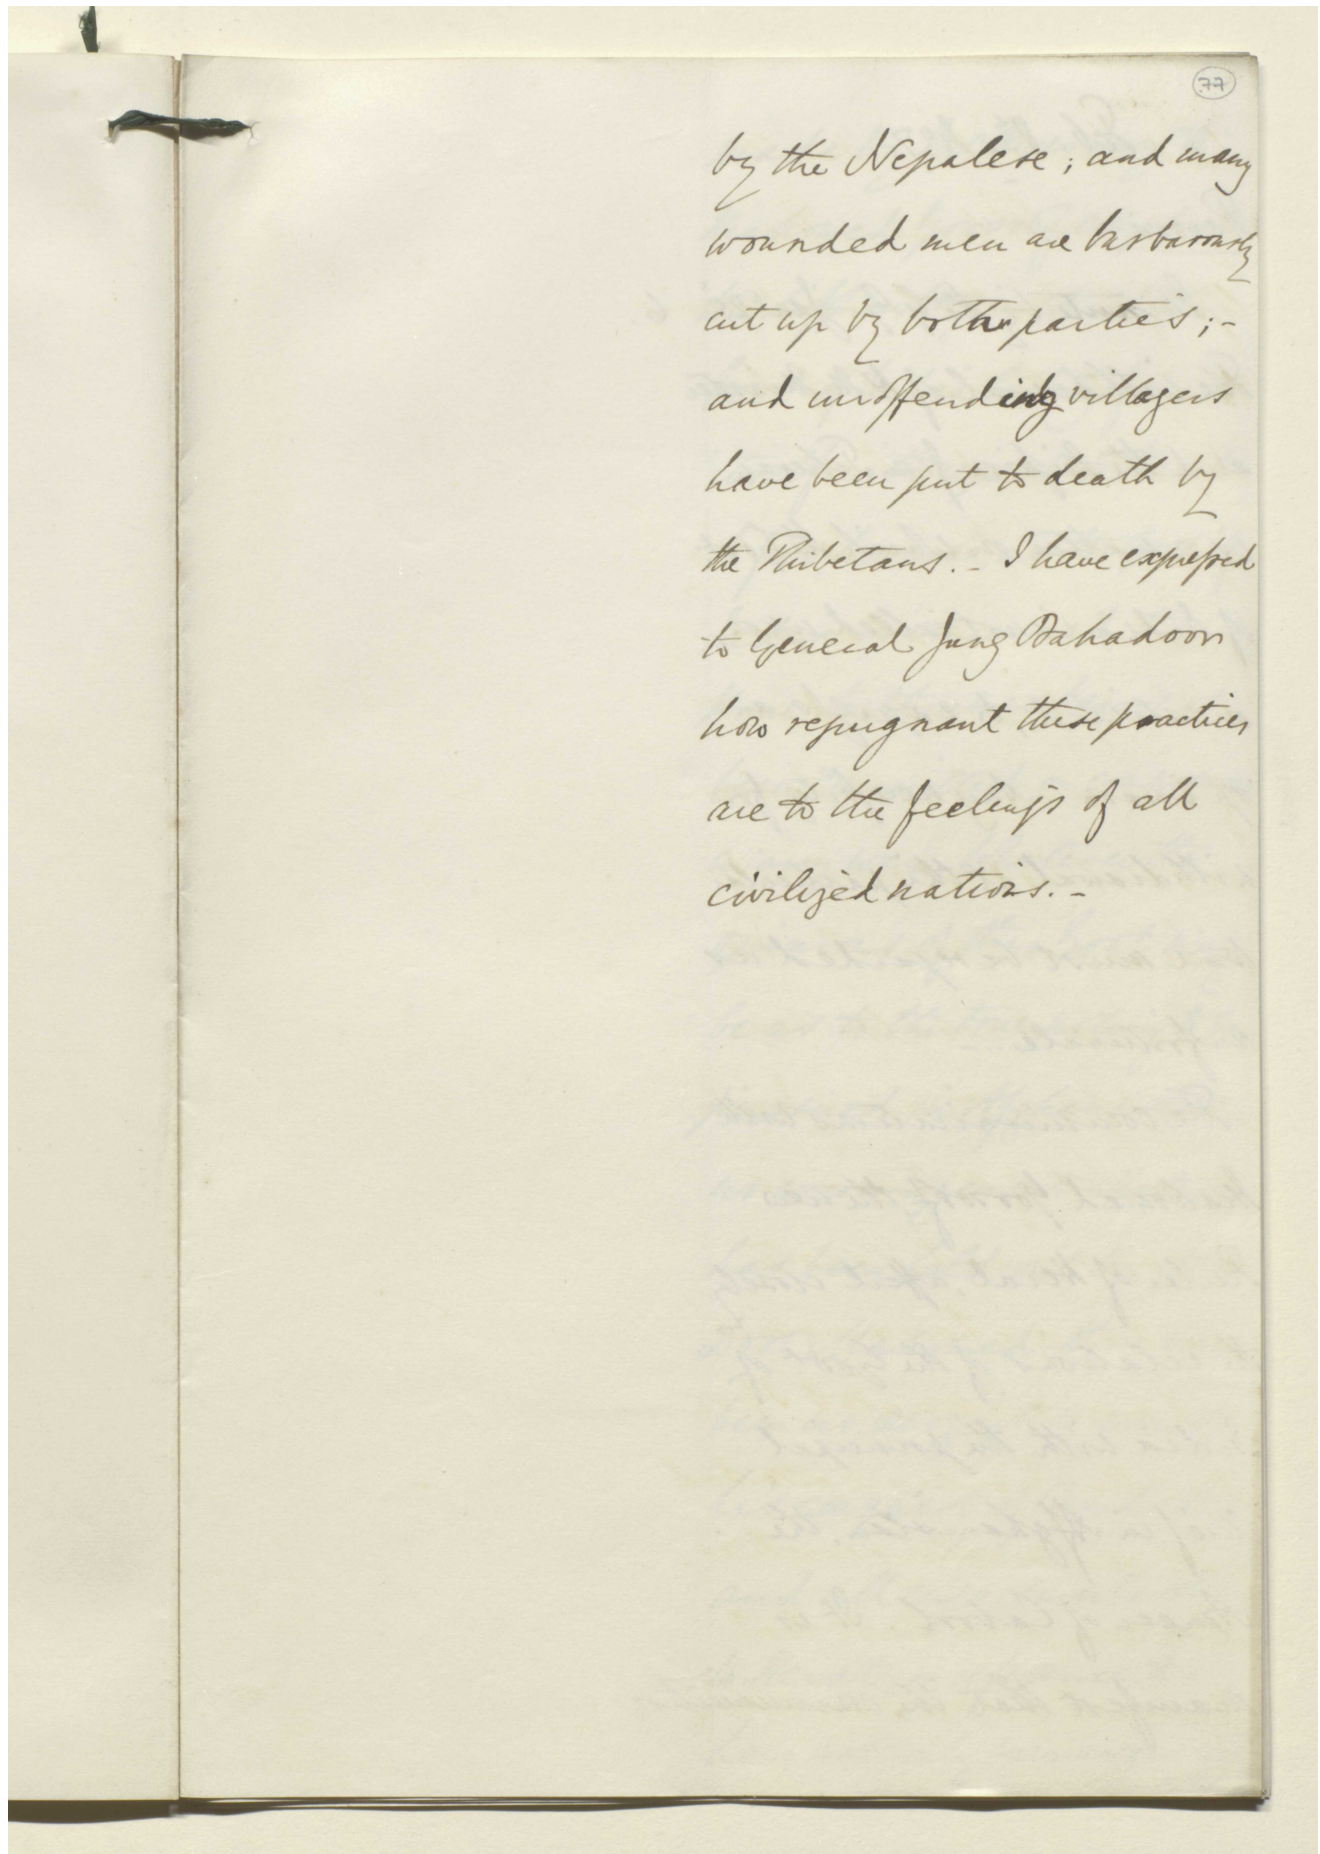 77
by the Nepalese; and many
wounded men are barbarously
cut up by both parties;-
and unoffending villagers
have been put to death by
the Thibetans.- I have expressed
to General Jung Bahadoor
how repugnant these practices
are to the feelings of all
civilized nations.-